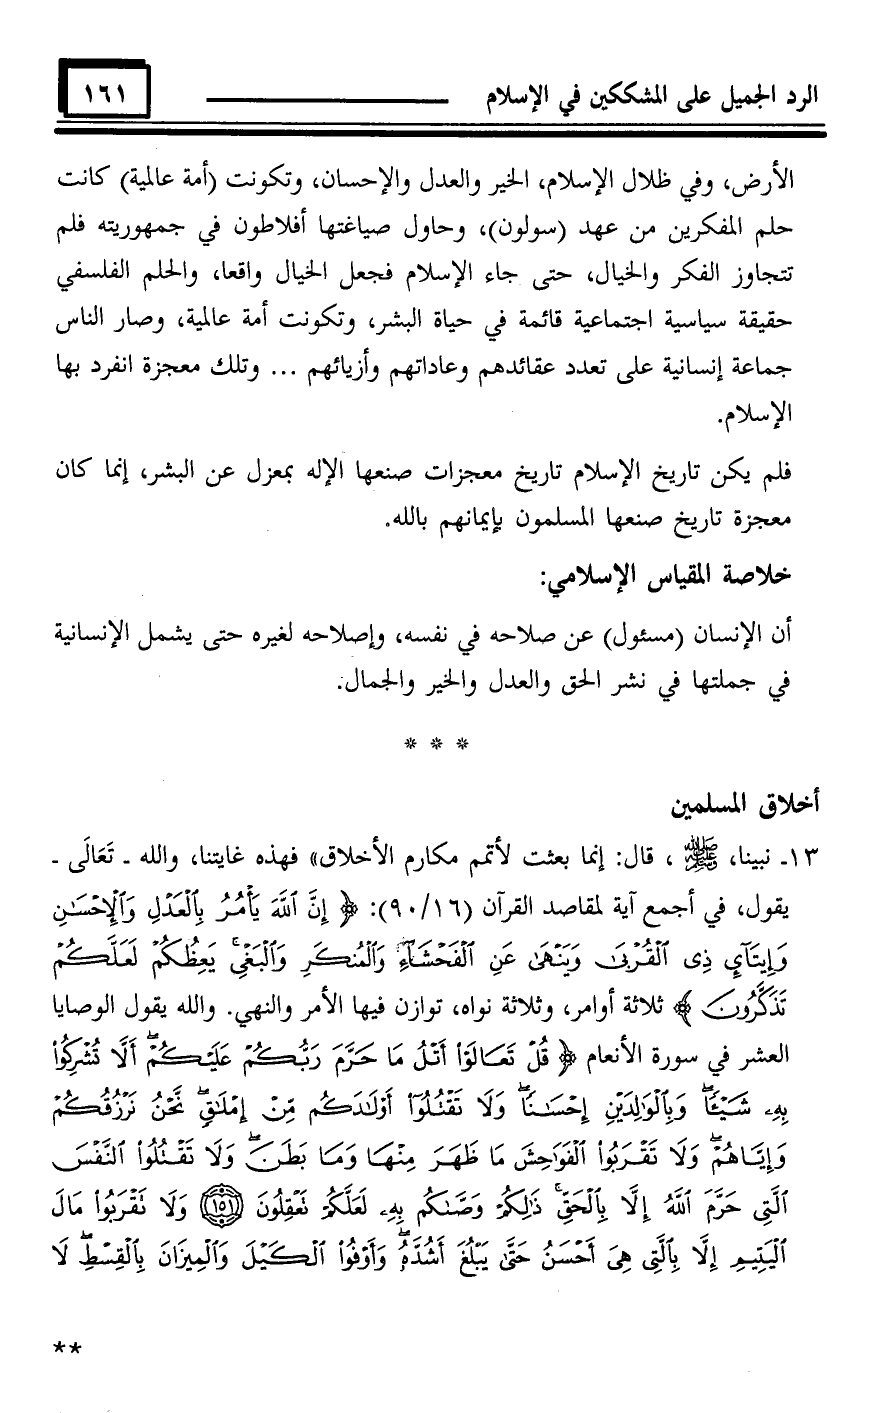 الرد الجميل على المشككين في الإسلام ١٦١
الأرض، وفي ظلال الإسلام، الخير والعدل والإحسان، وتكونت (أمة عالمية) كانت
حلم المفكرين من عهد (سولون)، وحاول صياغتها أفلاطون في جمهوريته فلم
تتجاوز الفكر والخيال، حتى جاء الإسلام فجعل الخيال واقعا، والحلم الفلسفي
حقيقة سياسية اجتماعية قائمة في حياة البشر، وتكونت أمة عالمية، وصار الناس
جماعة إنسانية على تعدد عقائدهم وعاداتهم وأزيائهم ... وتلك معجزة انفرد بها
الإسلام.
فلم يكن تاريخ الإسلام تاريخ معجزات صنعها الإله بمعزل عن البشر، إنما كان
معجزة تاريخ صنعها المسلمون بإيمانهم بالله.
خلاصة المقياس الإسلامي:
أن الإنسان (مسئول) عن صلاحه في نفسه، وإصلاحه لغيره حتى يشمل الإنسانية
في جملتها في نشر الحق والعدل والخير والجمال.
* * *
أخلاق المسلمين
١٣ـ نبينا، ﷺ ، قال: إنما بعثت لأتمم مكارم الأخلاق» فهذه غايتنا، والله ـ تَعَالَى ـ
يقول، في أجمع آية لمقاصد القرآن (٩٠/١٦): ﴿ إِنَّ ٱللَّهَ يَأْمُرُ بِٱلْعَدْلِ وَٱلْإِحْسَٰنِ
وَإِيتَآيِٕ ذِى ٱلْقُرْبَىٰ وَيَنْهَىٰ عَنِ ٱلْفَحْشَآءِ وَٱلْمُنكَرِ وَٱلْبَغْىِ ۚ يَعِظُكُمْ لَعَلَّكُمْ
تَذَكَّرُونَ ﴾ ثلاثة أوامر، وثلاثة نواه، توازن فيها الأمر والنهي. والله يقول الوصايا
العشر في سورة الأنعام ﴿ قُلْ تَعَالَوْا۟ أَتْلُ مَا حَرَّمَ رَبُّكُمْ عَلَيْكُمْ ۖ أَلَّا تُشْرِكُوا۟
بِهِۦ شَيْـًٔا ۖ وَبِٱلْوَٰلِدَيْنِ إِحْسَٰنًا ۖ وَلَا تَقْتُلُوٓا۟ أَوْلَٰدَكُم مِّنْ إِمْلَٰقٍ ۖ نَّحْنُ نَرْزُقُكُمْ
وَإِيَّاهُمْ ۖ وَلَا تَقْرَبُوا۟ ٱلْفَوَٰحِشَ مَا ظَهَرَ مِنْهَا وَمَا بَطَنَ ۖ وَلَا تَقْتُلُوا۟ ٱلنَّفْسَ
ٱلَّتِى حَرَّمَ ٱللَّهُ إِلَّا بِٱلْحَقِّ ۚ ذَٰلِكُمْ وَصَّىٰكُم بِهِۦ لَعَلَّكُمْ تَعْقِلُونَ (١٥١) وَلَا تَقْرَبُوا۟ مَالَ
ٱلْيَتِيمِ إِلَّا بِٱلَّتِى هِىَ أَحْسَنُ حَتَّىٰ يَبْلُغَ أَشُدَّهُۥ ۖ وَأَوْفُوا۟ ٱلْكَيْلَ وَٱلْمِيزَانَ بِٱلْقِسْطِ ۖ لَا
**